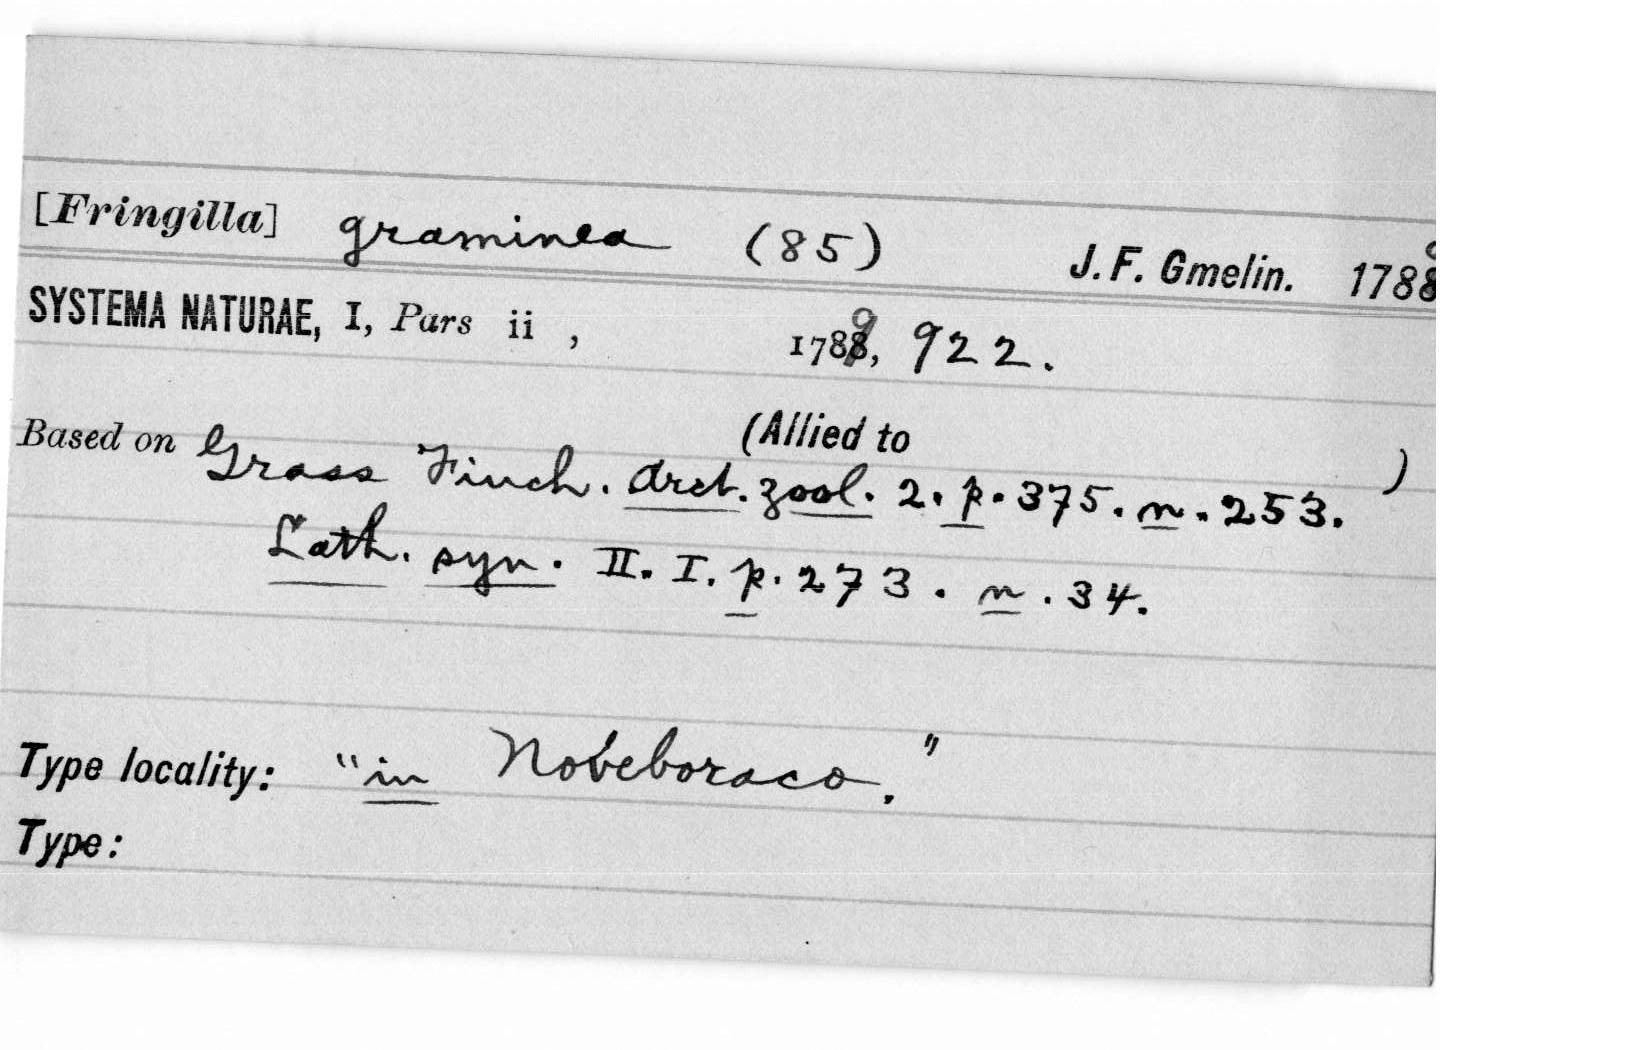 [Fringilla] graminea (85) J. F. Gmelin. 1788
SYSTEMA NATURAE, I, Pars ii , 1789, 922.
(Allied to )
Based on Grass Finch. Arct. zool. 2. p. 375. n. 253.
Lath. syn. II. I. p. 273. n. 34.
Type locality: "in Noveboraco."
Type: